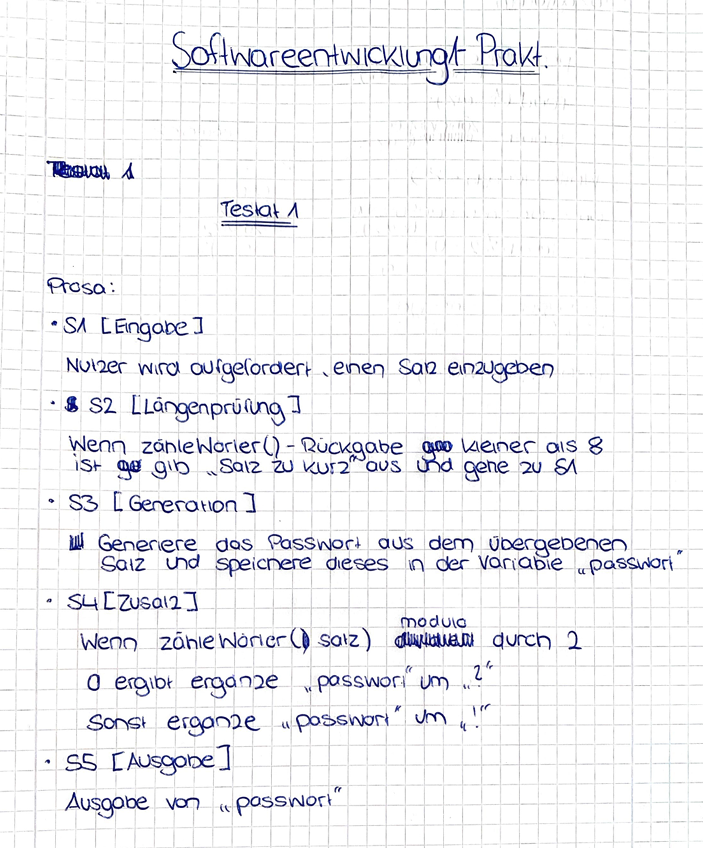 Softwareentwicklung 1 Prakt.
1
Testat 1
Prosa:
• S1 [Eingabe]
Nutzer wird aufgefordert, einen Satz einzugeben
• S2 [Längenprüfung]
Wenn zähleWörter()-Rückgabe kleiner als 8
ist gib „Satz zu kurz" aus und gehe zu S1
• S3 [Generation]
Generiere das Passwort aus dem übergebenen
Satz und speichere dieses in der Variable „passwort"
• S4 [Zusatz]
Wenn zähleWörter(satz) modulo durch 2
0 ergibt ergänze „passwort" um „?"
Sonst ergänze „passwort" um „!"
• S5 [Ausgabe]
Ausgabe von „passwort"